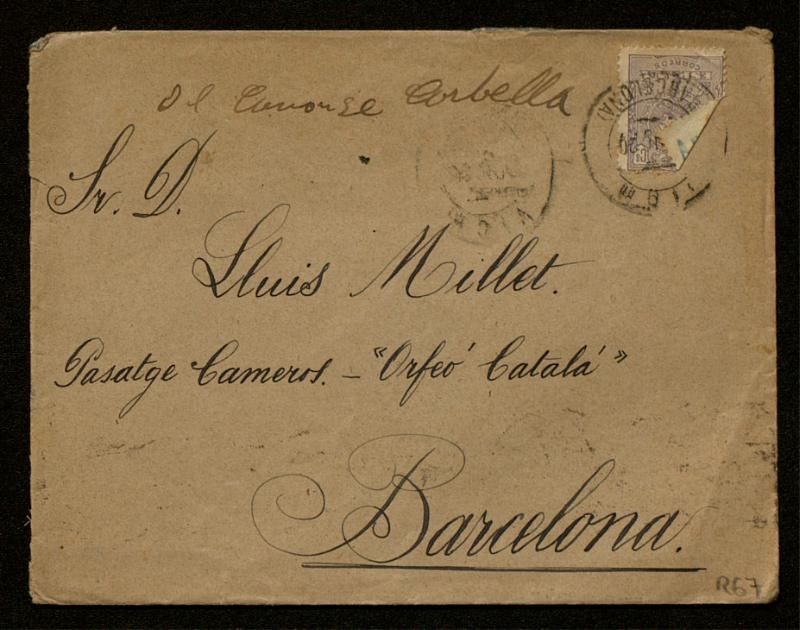 Del Canonge Corbella
Sr. D.
Lluis Millet.
Pasatge Cameros. - "Orfeó Catalá"
Barcelona.
VICH
CORREOS
R67